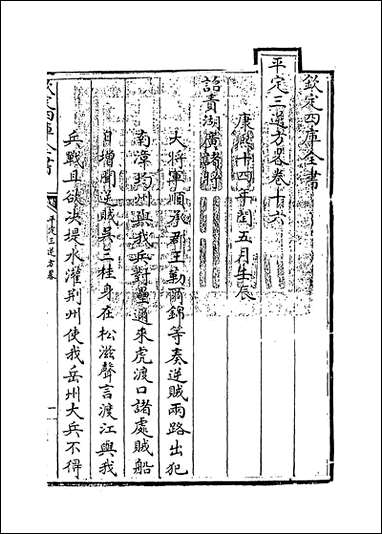 欽定四庫全書
平定三逆方略卷十六
康熙十四年閏五月壬辰
詔責湖廣諸將
大將軍順承郡王勒爾錦等奏逆賊兩路出犯
南漳均州與我兵對壘邇來虎渡口諸處賊船
日增聞逆賊吳三桂身在松滋聲言渡江與我
兵戰且欲決堤水灌荆州使我岳州大兵不得
欽定四庫全書
平定三逆方略
一